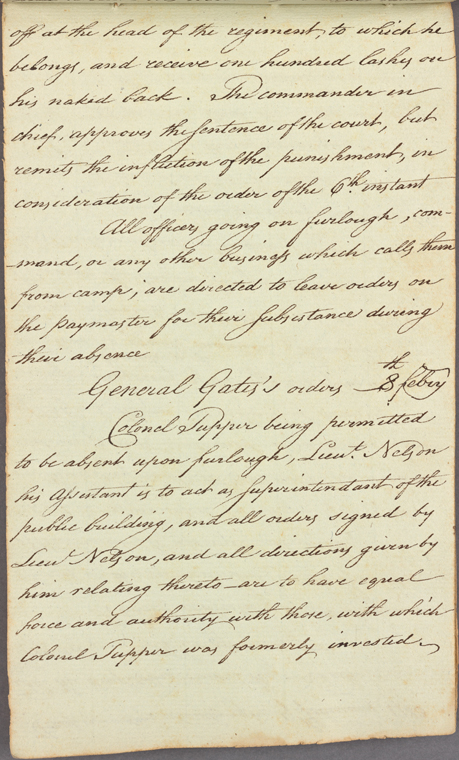 off at the head of the regiment to which he
belongs, and receive one hundred lashes on
his naked back. The commander in
chief, approves the sentence of the court, but
remits the infliction of the punishment, in
consideration of the order of the 6th instant
All officers going on furlough, com-
-mand, or any other business which calls them
from camp; are directed to leave orders on
the paymaster for their subsistance during
their absence
General Gates's orders 8th Febry
Colonel Tupper being permitted
to be absent upon furlough, Lieut. Nelson
his assistant is to act as superintendant of the
public building, and all orders signed by
Lieut Nelson, and all directions given by
him relating thereto are to have equal
force and authority with those, with which
Colonel Tupper was formerly invested.